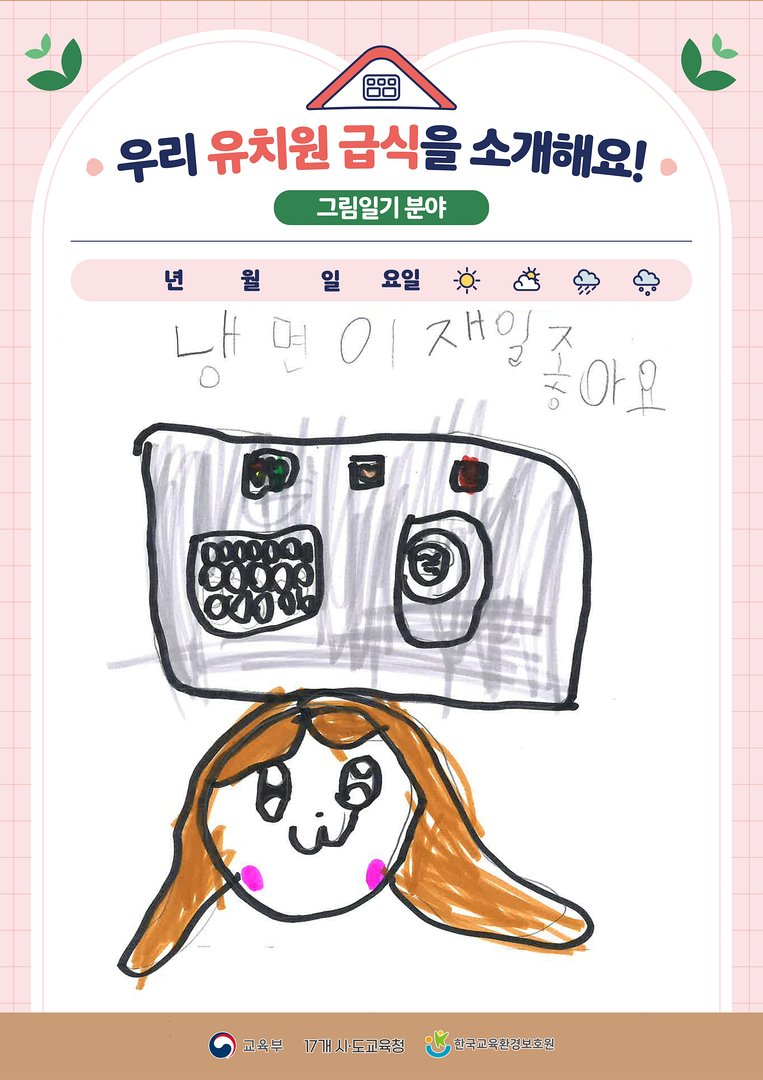 우리 유치원 급식을 소개해요!
그림일기 분야
년 월 일 요일
냉면이 재일 좋아요
교육부 17개 시·도교육청 한국교육환경보호원